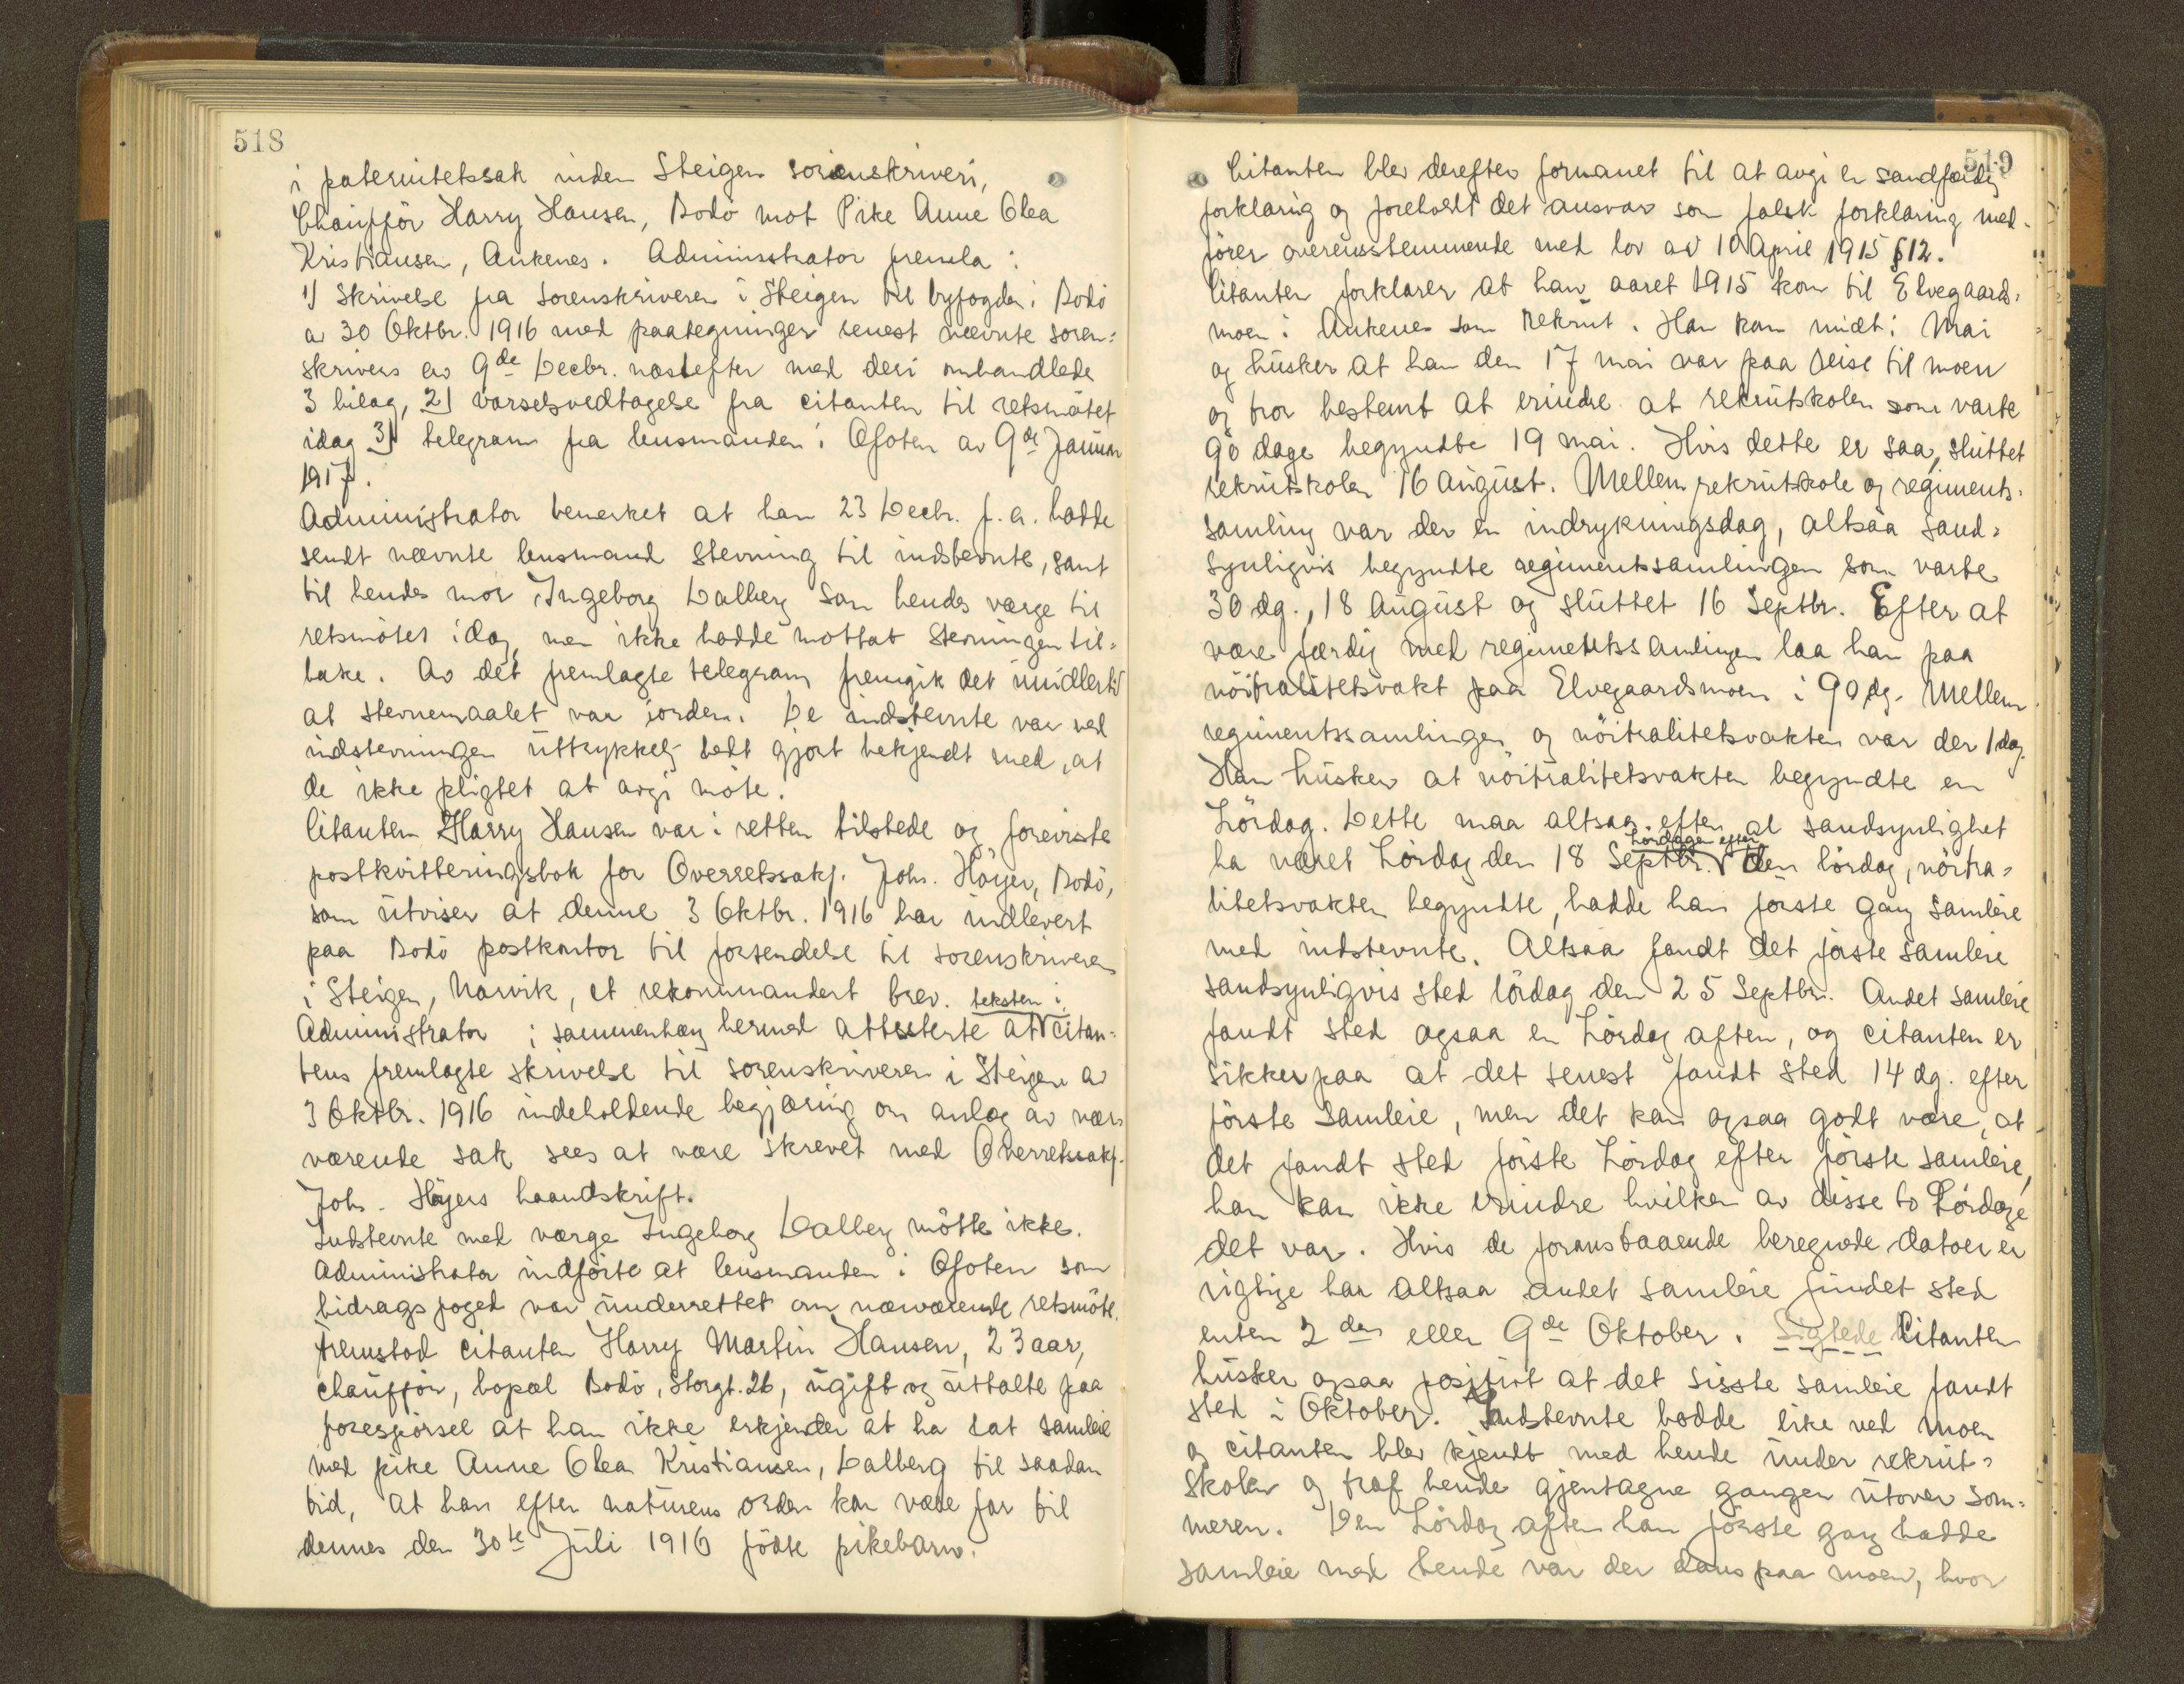 518
i paternitetssak inden Steigen sorenskriveri,
Chaufför Harry Hansen, Bodö mot Pike Anne Olea
Kristiansen, Ankenes. Administrator fremla:
1) Skrivelse fra sorenskriveren i Steigen til byfogden i Bodö
av 30 Oktbr. 1916 med paategninger senest nævnte soren=
skrivers av 9de Decbr. næstefter med deri omhandlede
3 bilag, 2) varselsvedtagelse fra citanten til retsmötet
idag 3) telegram fra lensmanden i Ofoten av 9de Januar
1917.
Administrator bemerket at han 23 Decbr. f.a. hadde
sendt nævnte lensmand Stevning til indstevnte, samt
til hendes mor Ingeborg Dalberg som hendes værge til
retsmötet idag, men ikke hadde mottat Stevningen til=
bake. Av det fremlagte telegram fremgik det imidlertid
at stevnemaalet var iorden. De indstevnte var ved
indstevningen uttrykkelig bedt gjort bekjendt med, at
de ikke pligtet at avgi möte.
Citanten Harry Hansen var i retten tilstede og foreviste
postkvitteringsbok for Overretssakf. Johs. Höyer, Bodö,
som utviser at denne 3 Oktbr. 1916 har indlevert
paa Bodö postkontor til forsendelse til sorenskriveren
i Steigen, Narvik, et rekommandert brev.
teksten i
Administrator i sammenhæng hermed attesterte at citan=
tens fremlagte skrivelse til sorenskriveren i Steigen av
3 Oktbr. 1916 indeholdende begjæring om anlæg av nær=
værende sak sees at være skrevet med Overretssakf.
Johs. Höyers haandskrift.
Indstevnte med værge Ingeborg Dalberg mötte ikke.
Administrator indförte at lensmanden i Ofoten som
bidragsfoged var underrettet om nærværende retsmöte.
Fremstod citanten Harry Martin Hansen, 23 aar,
chauffør, bopæl Bodö, Storgt. 26, ugift og uttalte paa
forespörsel at han ikke erkjender at ha hat samleie
med pike Anne Olea Kristiansen, Dalberg til saadan
tid, at han efter naturens orden kan være far til
dennes den 30te Juli 1916 födte pikebarn.
519
Citanten blev derefter formanet til at avgi en sandfærdig
forklaring og foreholdt det ansvar som falsk forklaring med=
förer overensstemmende med lov av 10 April 1915 §12.
Citanten forklarer at han aaret 1915 kom til Elvegaards=
moen i Ankenes som rekrut. Han kom midt i Mai
og husker at han den 17 mai var paa reise til moen
og tror bestemt at erindre at rekrutskolen som varte
90 dage begyndte 19 mai. Hvis dette er saa, sluttet
rekrutskolen 16 August. Mellem rekrutskole og regiments=
samling var der en indrykningsdag, altsaa sand=
synligvis begyndte regimentssamlingen som varte
30 dg., 18 August og sluttet 16 Septbr. Efter at
være færdig med regimentssamlingen laa han paa
nöitralitetsvakt paa Elvegaardsmoen i 90 dg. Mellem
regimentssamlingen og nöitralitetsvakten var der 1 dag.
Han husker at nöitralitetsvakten begyndte en
Lördag. Dette maa altsaa efter al sandsynlighet
Lördagen efter
ha været Lördag den 18 Septbr. den lördag, nöitra=
litetsvakten begyndte, hadde han förste gang samleie
med indstevnte. Altsaa fandt det förste samleie
sandsynligvis sted lördag den 25 Septbr. Andet samleie
fandt sted ogsaa en Lördag aften, og citanten er
sikker paa at det senest fandt sted 14 dg. efter
förste samleie, men det kan ogsaa godt være, at
det fandt sted förste Lördag efter förste samleie,
han kan ikke erindre hvilken av disse to Lördage
det var. Hvis de foranstaaende beregnede datoer er
rigtige har altsaa andet samleie fundet sted
enten 2den eller 9de Oktober. Sigtede Citanten
husker ogsaa positivt at det sisste samleie fandt
sted i Oktober. Indstevnte bodde like ved moen
og citanten blev kjendt med hende under rekrut=
skolen og traf hende gjentagne ganger utover som=
meren. Den Lördag aften han förste gang hadde
samleie med hende var der dans paa moen, hvor